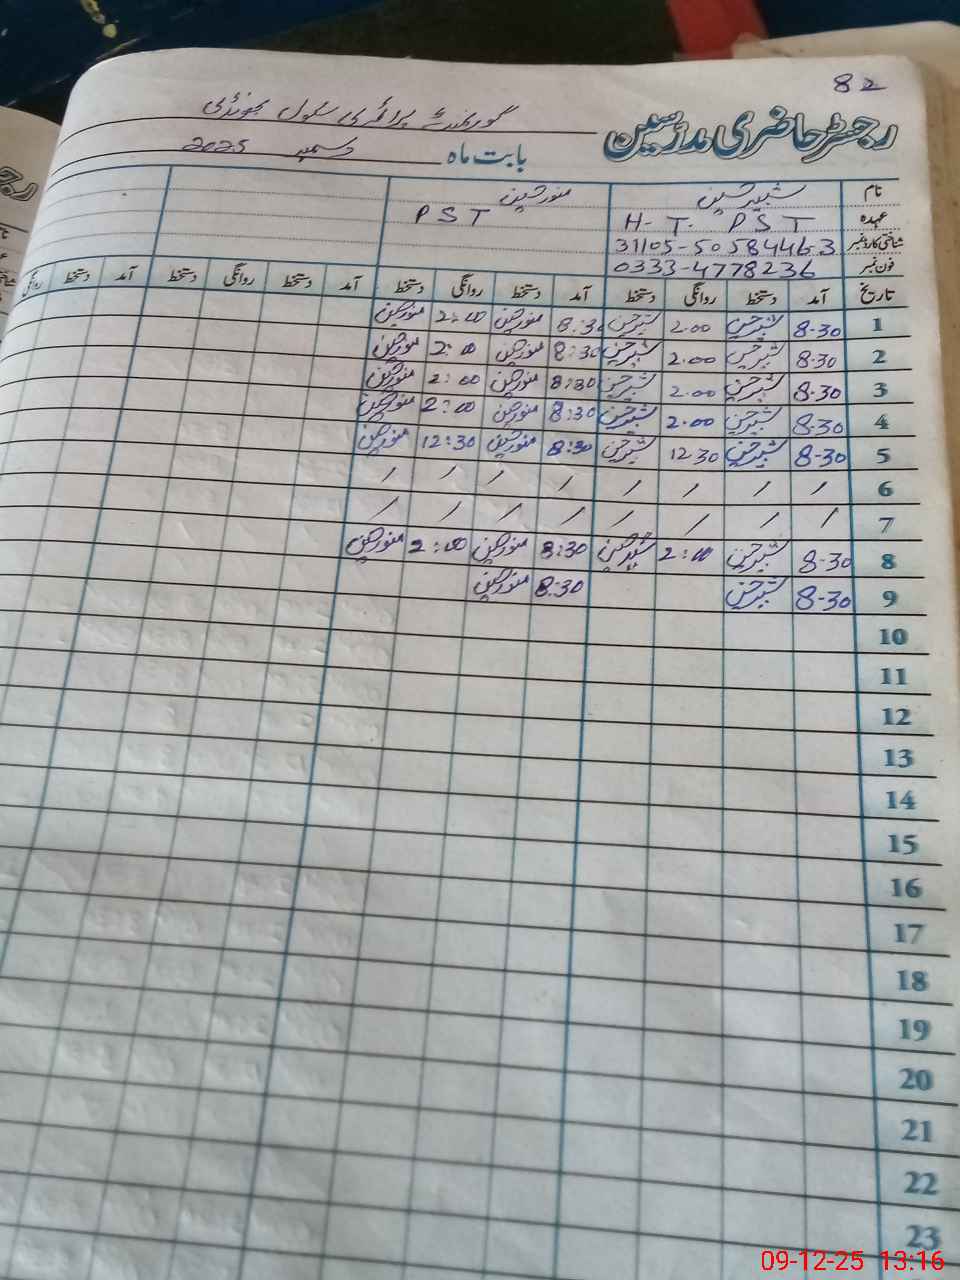 82
رجسٹر حاضری مدرسین گورنمنٹ پرائمری سکول
بابت ماہ دسمبر 2025
نام شبیر حسین منور حسین
عہدہ H-T. PST PST
شناختی کارڈ نمبر 31105-5058446-3
فون نمبر 0333-4778236
تاریخ آمد دستخط روانگی دستخط آمد دستخط روانگی دستخط آمد دستخط روانگی دستخط آمد دستخط روانگی
1 8-30 شبیر حسین 2.00 شبیر حسین 8:30 منور حسین 2:00 منور حسین
2 8-30 شبیر حسین 2.00 شبیر حسین 8:30 منور حسین 2:00 منور حسین
3 8-30 شبیر حسین 2.00 شبیر حسین 8:30 منور حسین 2:00 منور حسین
4 8-30 شبیر حسین 2.00 شبیر حسین 8:30 منور حسین 2:00 منور حسین
5 8-30 شبیر حسین 12 30 شبیر حسین 8:30 منور حسین 12:30 منور حسین
6 / / / / / / / /
7 / / / / / / / /
8 8-30 شبیر حسین 2:00 شبیر حسین 8:30 منور حسین 2:00 منور حسین
9 8-30 شبیر حسین 8:30 منور حسین
10
11
12
13
14
15
16
17
18
19
20
21
22
23
09-12-25 13:16